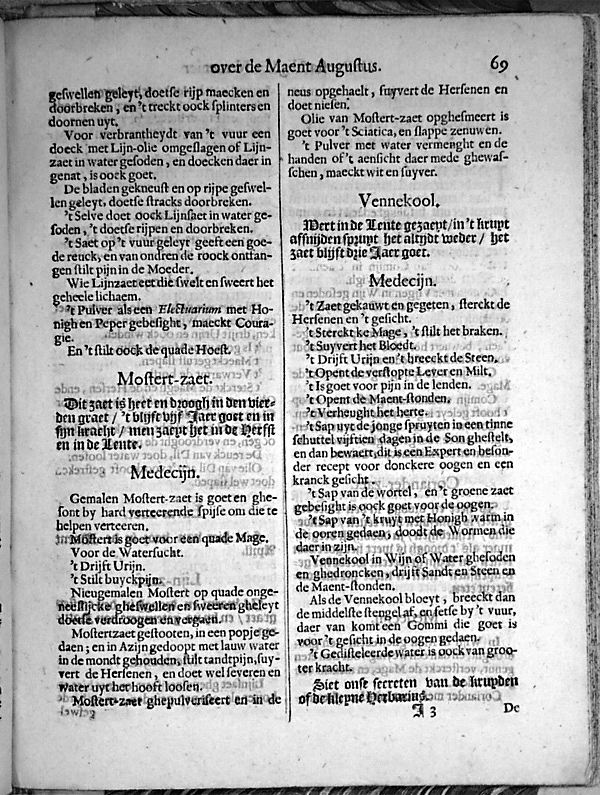 over de Maent Augustus. 69
geswellen geleyt, doetse rijp maecken en
doorbreken, en 't treckt oock splinters en
doornen uyt.
Voor verbrantheydt van 't vuur een
doeck met Lijn-olie omgeslagen of Lijn-
zaet in water gesoden, en doecken daer in
genat, is oock goet.
De bladen gekneust en op rijpe geswel-
len geleyt, doetse stracks doorbreken.
't Selve doet oock Lijnsaet in water ge-
soden, 't doetse rijpen en doorbreken.
't Saet op 't vuur geleyt geeft een goe-
de reuck, en van ondren de roock ontfan-
gen stilt pijn in de Moeder.
Wie Lijnzaet eet die swelt en sweert het
geheele lichaem.
't Pulver als een Electuarium met Ho-
nigh en Peper gebesight, maeckt Coura-
gie.
En 't stilt oock de quade Hoest.
Mostert-zaet.
Dit zaet is heet en droogh in den vier-
den graet / 't blijft vijf Jaer goet en in
sijn kracht / men zaeyt het in de Herfst
en in de Lente.
Medecijn.
Gemalen Mostert-zaet is goet en ghe-
sont by hard verteerende spijse om die te
helpen verteeren.
Mostert is goet voor een quade Mage.
Voor de Watersucht.
't Drijft Urijn.
't Stilt buyckpijn.
Nieugemalen Mostert op quade onge-
neeslijcke gheswellen en sweeren gheleyt
doetse verdroogen en vergaen.
Mostertzaet gestooten, in een popje ge-
daen; en in Azijn gedoopt met lauw water
in de mondt gehouden, stilt tandtpijn, suy-
vert de Hersenen, en doet wel severen en
water uyt het hooft loosen.
Mostert-zaet ghepulveriseert en in de
neus opgehaelt, suyvert de Hersenen en
doet niesen.
Olie van Mostert-zaet opghesmeert is
goet voor 't Sciatica, en slappe zenuwen.
't Pulver met water vermenght en de
handen of 't aensicht daer mede ghewas-
schen, maeckt wit en suyver.
Vennekool.
Wert in de Lente gezaeyt / in 't kruyt
afsnijden spruyt het altijdt weder / het
zaet blijft drie Jaer goet.
Medecijn.
't Zaet gekauwt en gegeten, sterckt de
Hersenen en 't gesicht.
't Sterckt ke Mage, 't stilt het braken.
't Suyvert het Bloedt.
't Drijft Urijn en 't breeckt de Steen.
't Opent de verstopte Lever en Milt.
't Is goet voor pijn in de lenden.
't Opent de Maent-stonden.
't Verheught het herte.
't Sap uyt de jonge spruyten in een tinne
schuttel vijftien dagen in de Son ghestelt,
en dan bewaert, dit is een Expert en beson-
der recept voor donckere oogen en een
kranck gesicht.
't Sap van de wortel, en 't groene zaet
gebesight is oock goet voor de oogen.
't Sap van 't kruyt met Honigh warm in
de ooren gedaen, doodt de Wormen die
daer in zijn.
Vennekool in Wijn of Water ghesoden
en ghedroncken, drijft Sandt en Steen en
de Maent-stonden.
Als de Vennekool bloeyt, breeckt dan
de middelste stengel af, en setse by 't vuur,
daer van komt een Gommi die goet is
voor 't gesicht in de oogen gedaen.
't Gedisteleerde water is oock van groo-
ter kracht.
Siet onse secreten van de kruyden
of de kleyne Herbarius.
I 3 De